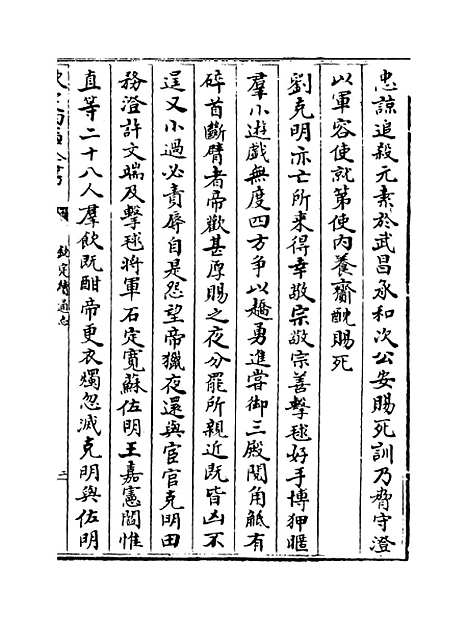 忠諒追殺元素於武昌承和次公安賜死訓乃脅守澄
以軍容使就第使內養齎酖賜死
劉克明亦亡所來得幸敬宗敬宗善擊毬好手博狎暱
羣小遊戲無度四方爭以趫勇進嘗御三殿閱角觝有
碎首斷臂者帝歡甚厚賜之夜分罷所親近既皆凶不
逞又小過必責辱自是怨望帝獵夜還與宦官克明田
務澄許文端及擊毬將軍石定寬蘇佐明王嘉憲閻惟
直等二十八人羣飲既酣帝更衣燭忽滅克明與佐明
欽定續通志